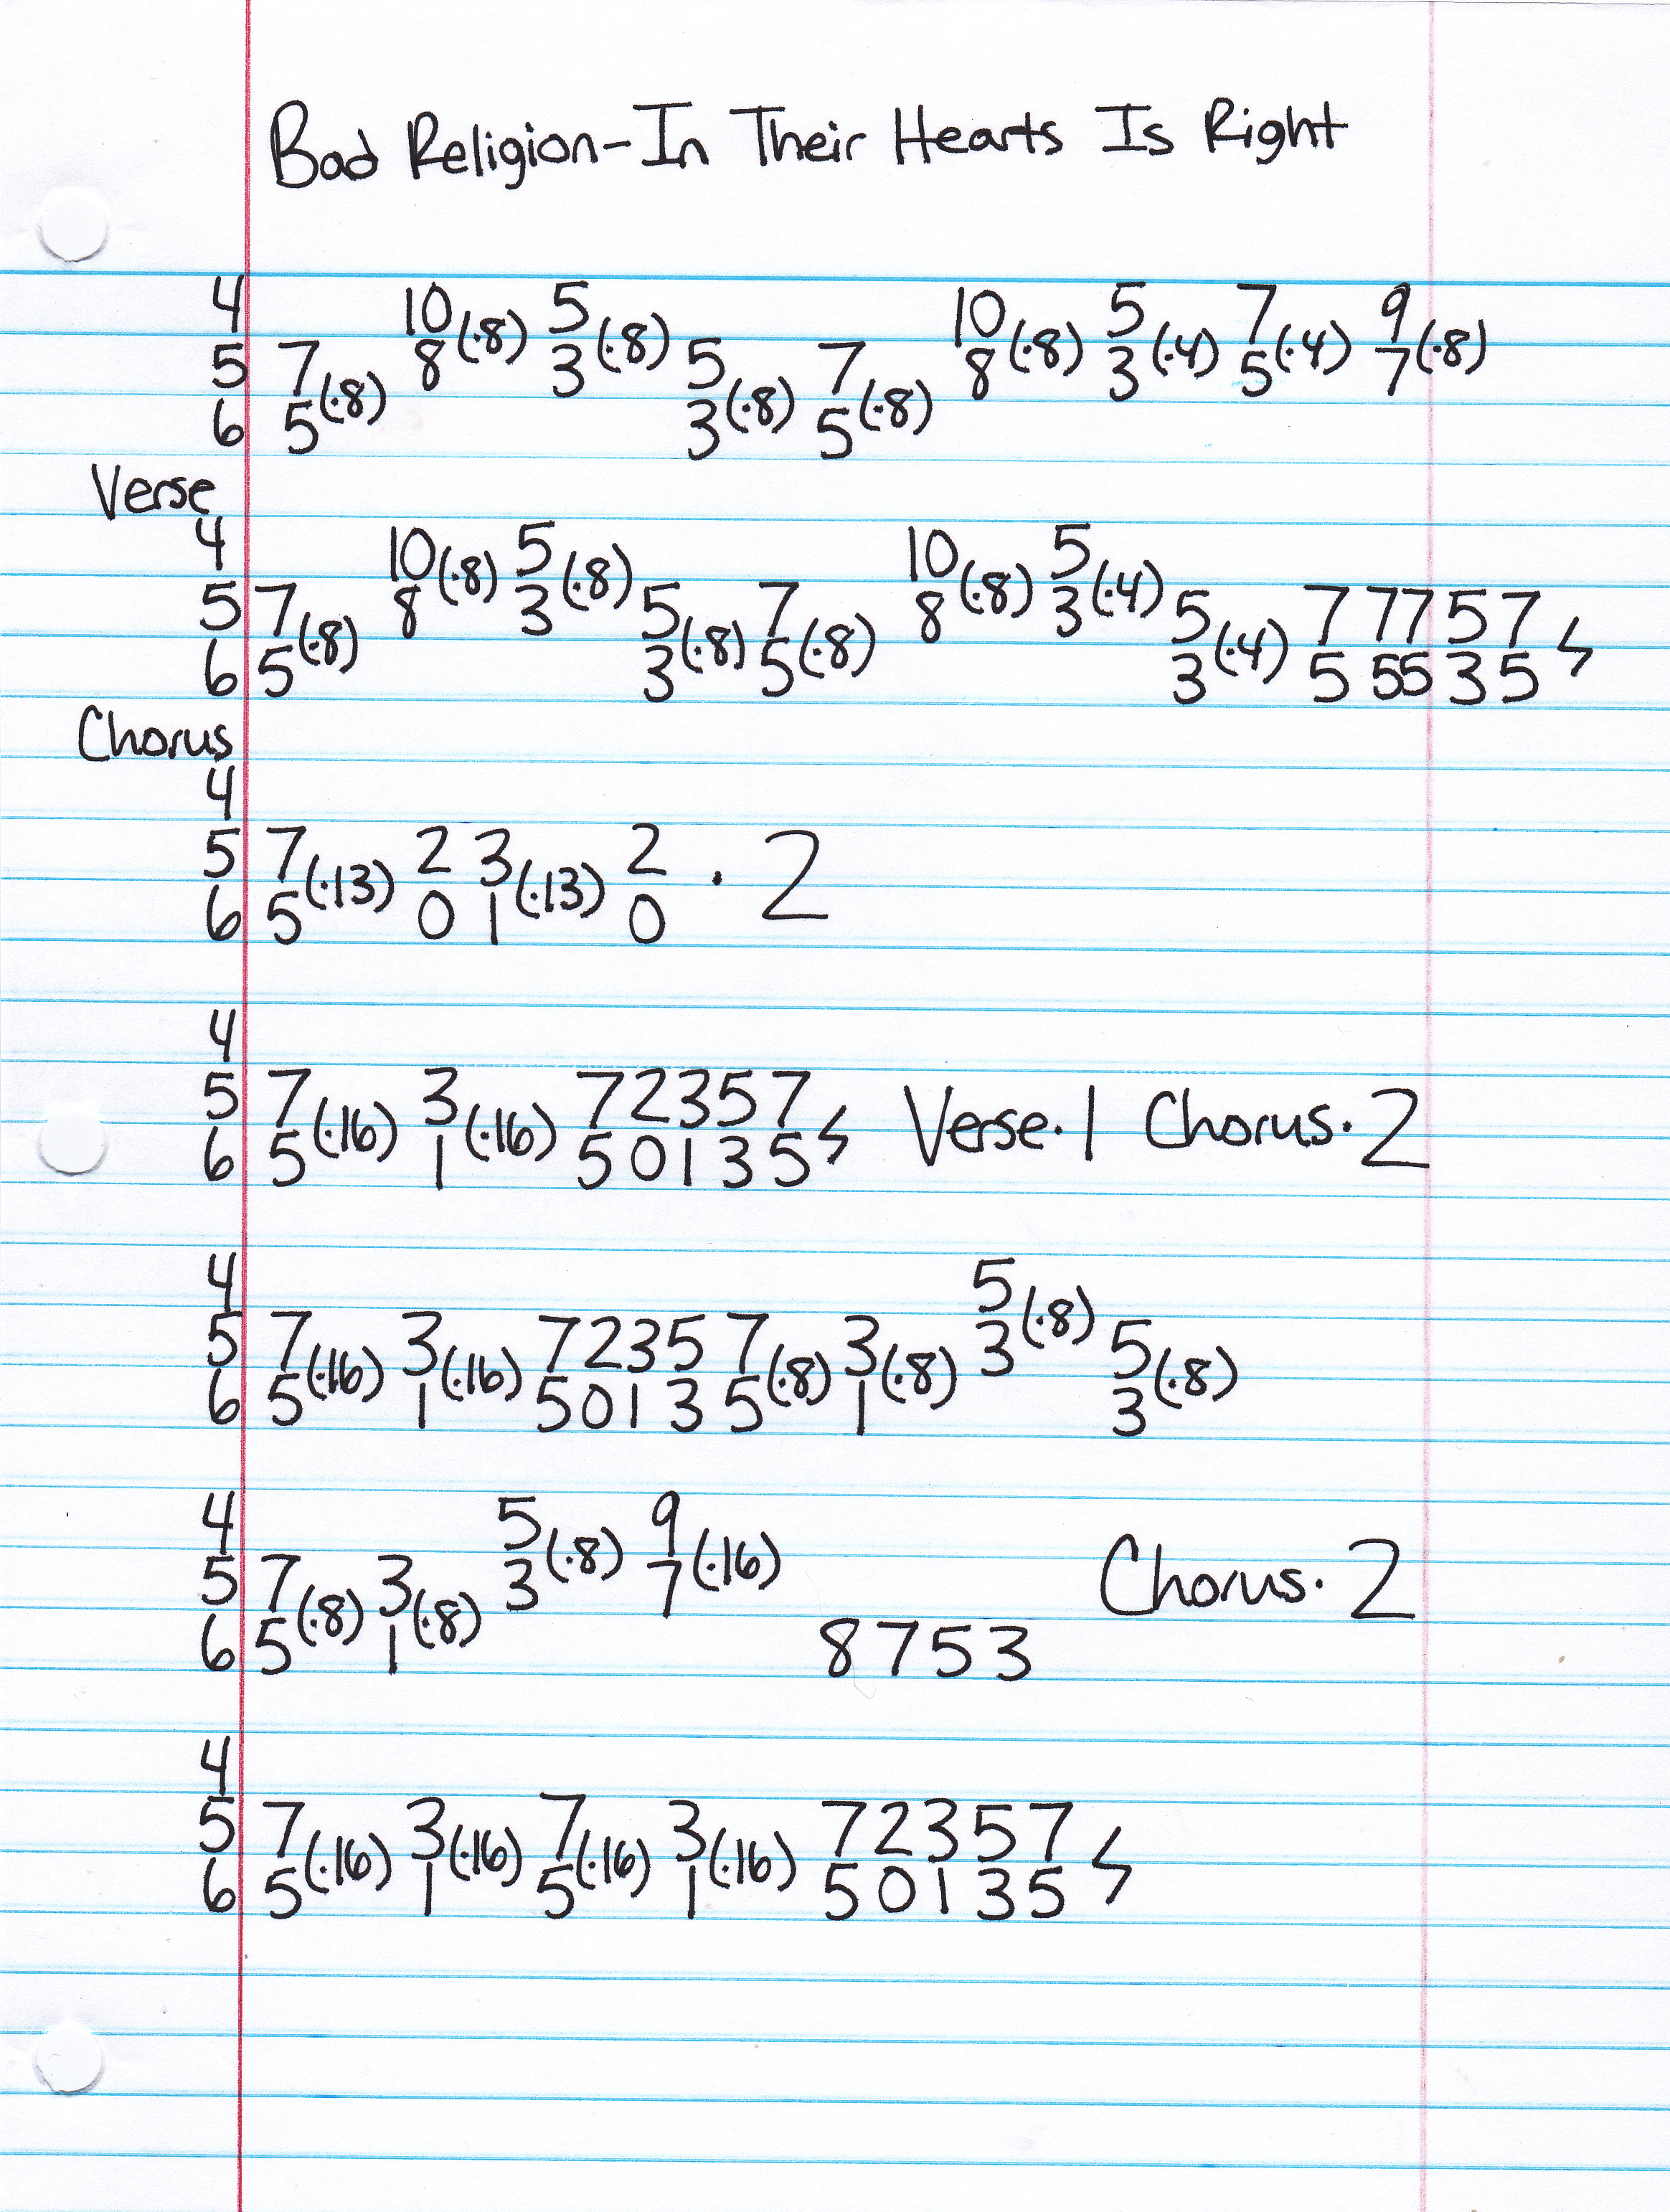 Bad Religion-In Their Hearts Is Right
4 10(·8) 5(·8) 10(·8) 5(·4) 7(·4) 9(·8)
5 7(·8) 8 3 5(·8) 7(·8) 8 3 5 7
6 5 3 5
Verse
4 10(·8) 5(·8) 10(·8) 5(·4)
5 7(·8) 8 3 5(·8) 7(·8) 8 3 5(·4) 7 7 7 5 7
6 5 3 5 3 5 5 5 3 5
Chorus
4
5 7(·13) 2 3(·13) 2 · 2
6 5 0 1 0
4
5 7(·16) 3(·16) 7 2 3 5 7 Verse·1 Chorus·2
6 5 1 5 0 1 3 5
4 5(·8)
5 7(·16) 3(·16) 7 2 3 5 7(·8) 3(·8) 3 5(·8)
6 5 1 5 0 1 3 5 1 3
4 5(·8) 9(·16)
5 7(·8) 3(·8) 3 7 Chorus·2
6 5 1 8 7 5 3
4
5 7(·16) 3(·16) 7(·16) 3(·16) 7 2 3 5 7
6 5 1 5 1 5 0 1 3 5